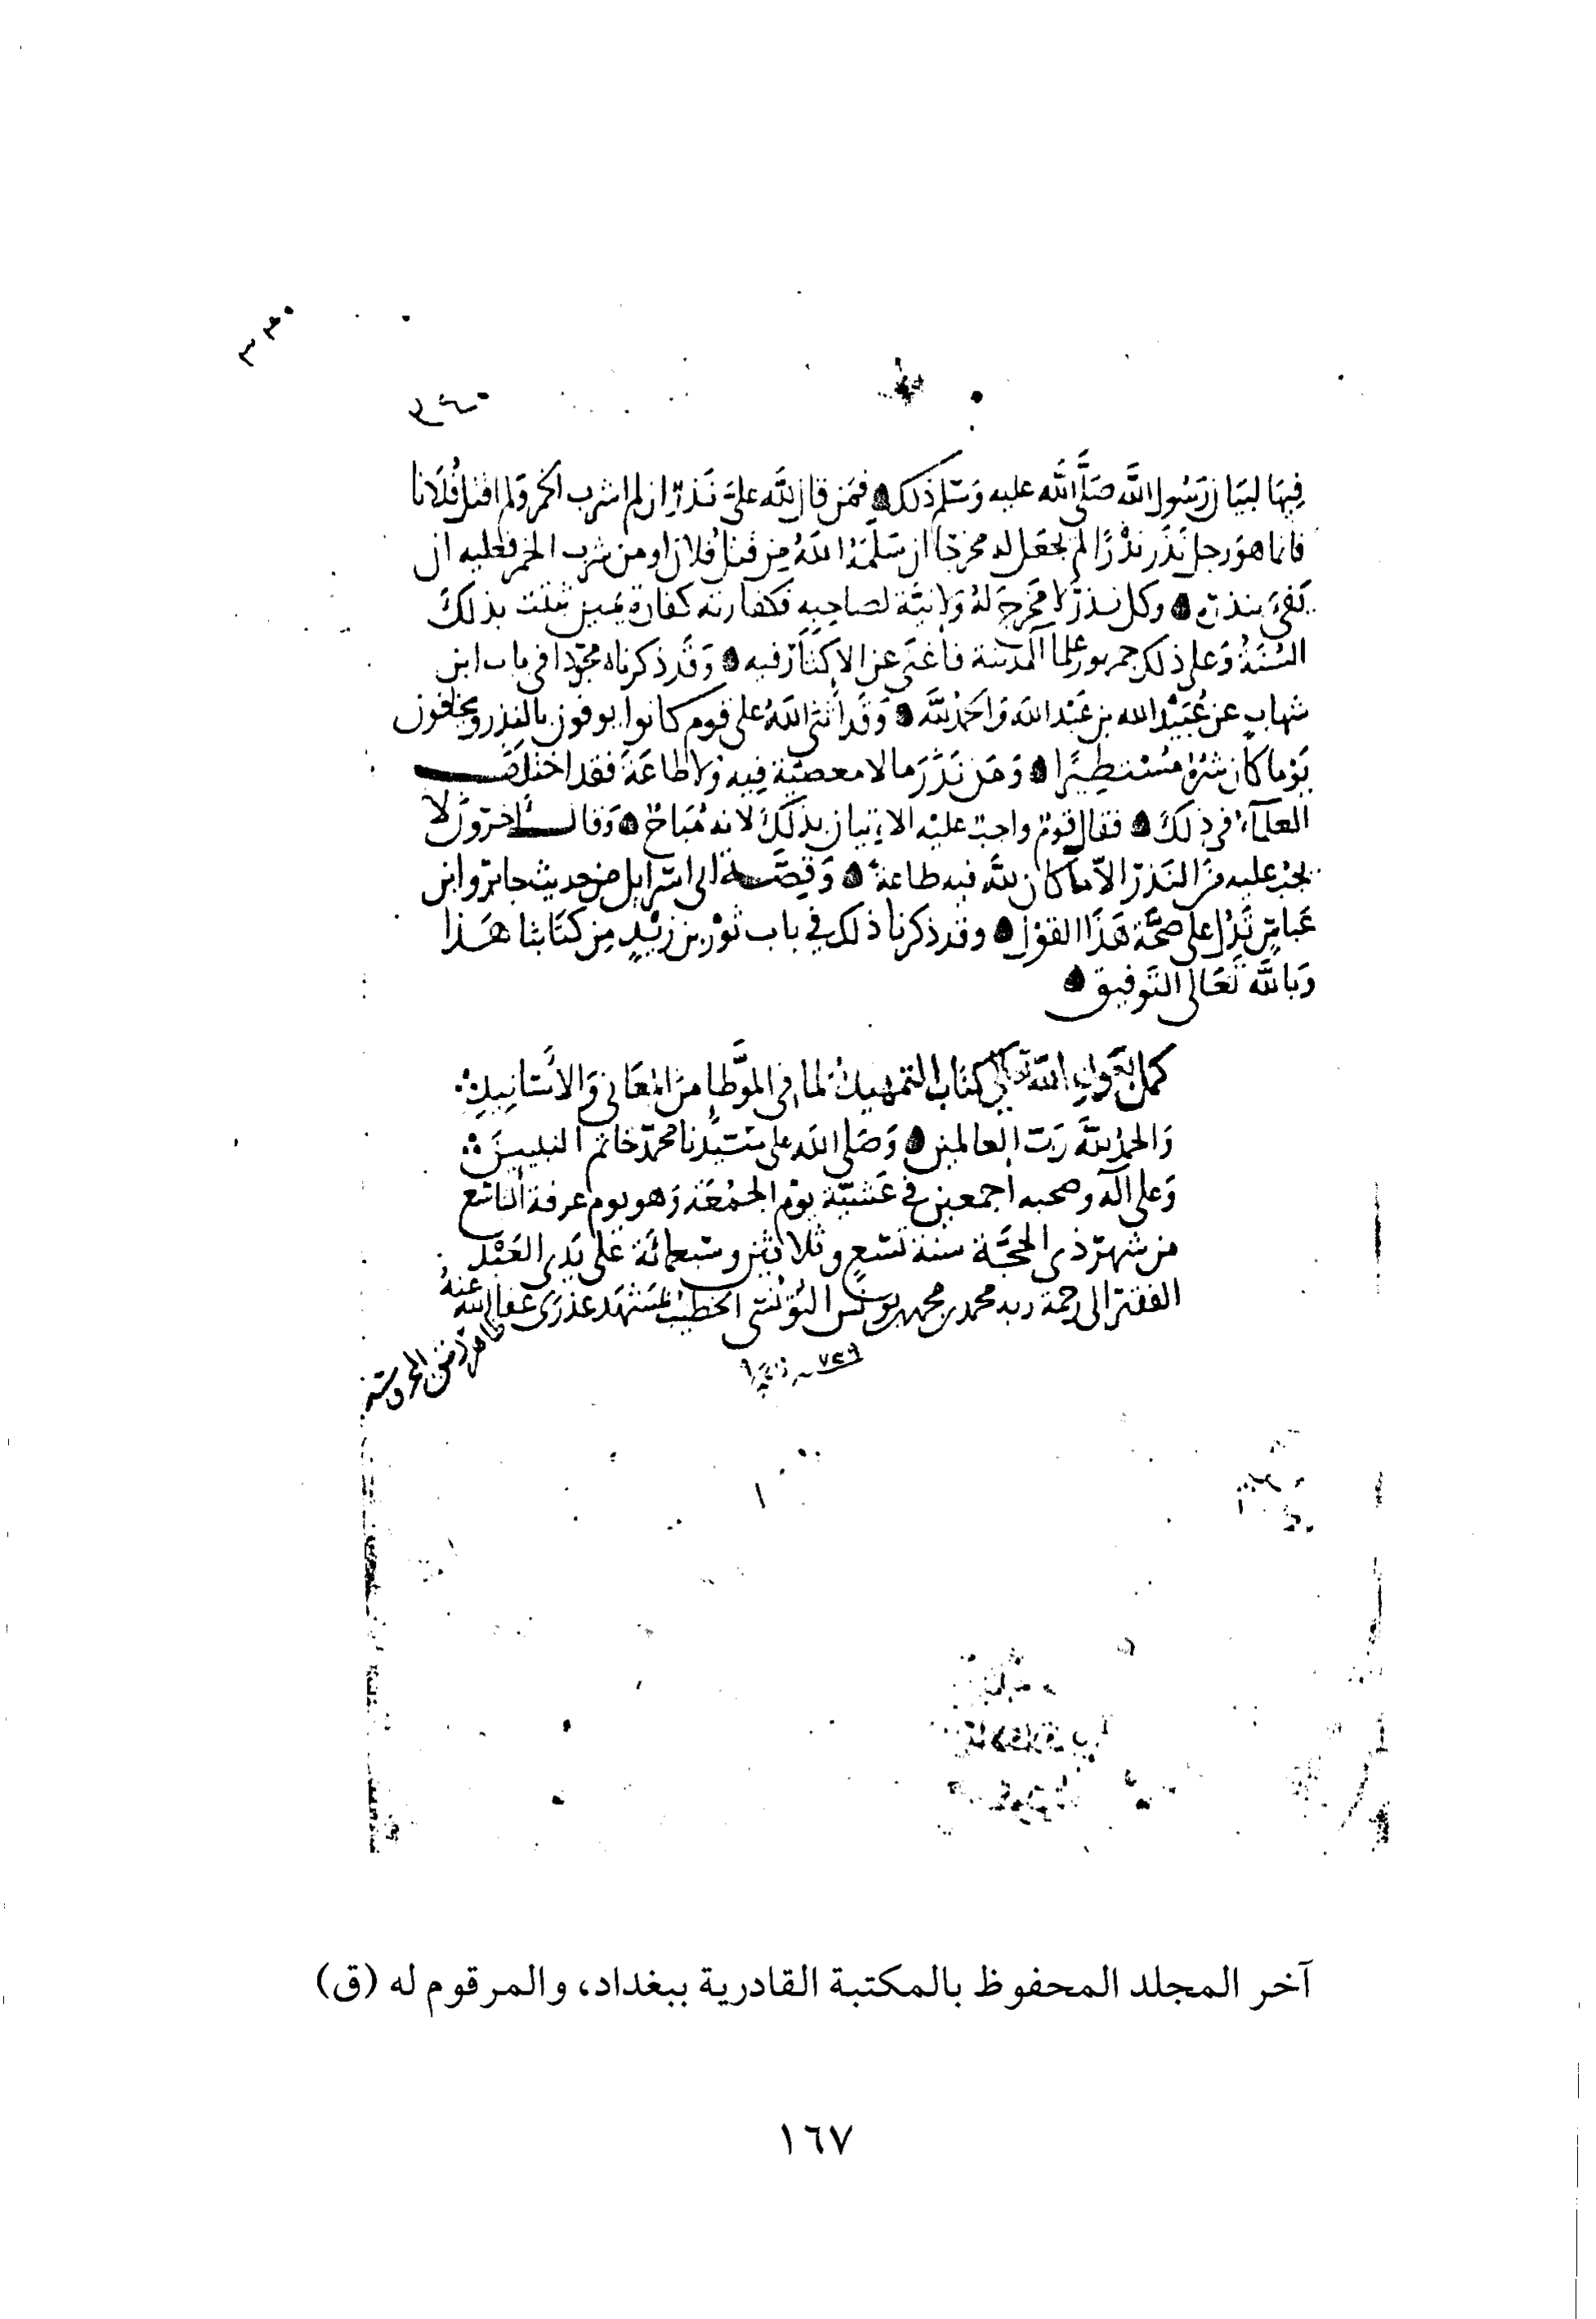 ٣٤٠
فِيهَا لبَيَان رَسُول اللَّه صَلَّى اللَّه عليه وَسَلم ذلك ۞ فمَن قال للَّه علىَّ نَذر ان لم اشرب الخمر ولم اقتل فُلَانا
فانما هوَ رجل نَذَر نذْرًا لم يجعَل له مخرجًا ان سَلَّمَهُ اللَّهُ مِن قتل فُلان او من شرب الخمر فعليه ان
يَفىَ بنذره ۞ وكل نذرٍ لا مَخرجَ لهُ وَلا نيَّة لصاحِبِه فكفارته كفارة يمين ثبتت بذلكَ
السُنَّةُ وَعلى ذلك جمهور علما المدينة فأغنَى عن الاكثار فيه ۞ وَقَد ذكرناه مجوَّدا فى باب ابن
شهابٍ عن عُبَيْد الله بن عَبْد اللَّه وَالحَمْدُ للَّه ۞ وَقَد أثنَى اللَّهُ على قوم كانوا يوفون بالنذر ويخافون
يَوْما كان شرُّه مُسْتطِيرًا ۞ وَمَن نَذَرَ مالا معصيَة فِيه وَلا طاعَةَ فقد اختلف
العلمآء فى ذلكَ ۞ فقال قومٌ واجبٌ عليْه الاتيان بذلكَ لانه مُبَاحٌ ۞ وَقال آخرُون لا
يجبُ عليه منَ النَذر الَّا ما كان للَّه فيه طاعة ۞ وَقِصَّة ابى اسرايل من حديث جابر وابن
عَباسٍ تَدُل على صحَّة هَذَا القوْل ۞ وقد ذكرنا ذلك في باب ثوْر بن زيْدٍ مِن كتَابنا هَذا
وَباللَّه تَعَالى التَوفيق ۞
كمل بعَون اللَّه تعالى كتَاب التمهيد لما فى الموَّطإ منَ المعَانى وَالاَسَانِيدِ
وَالحمدُ للَّه رَبّ العالمين ۞ وَصَلى اللَّه على سَيّدنا محمدٍ خاتم النبيينَ
وَعلى آله وصحبه أجمعين في عَشيّة يوْم الجمُعَة وَهو يوم عرفة التاسع
من شهر ذى الحجَّة سنة تسَعٍ وثلاثين وسَبعمائة على يَدى العَبْد
الفقير الى رحمة ربه محمد بن محمد بن يونس اليُونُسى الخطيب بمَشهَد عذرى عفا الله عنهُ
ظاهر دمشق المحروسة
٧٣٩
آخر المجلد المحفوظ بالمكتبة القادرية ببغداد، والمرقوم له (ق)
١٦٧